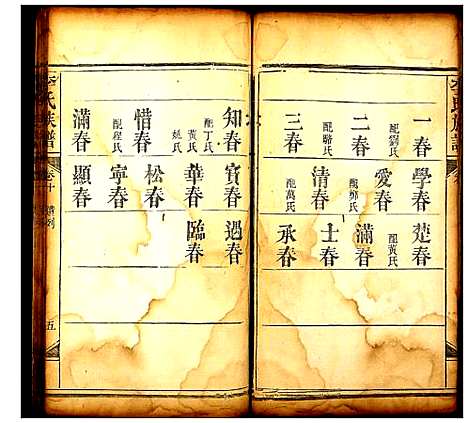 李氏族譜
一春 配劉氏
二春 配駱氏
三春
學春
愛春 配鄭氏
清春 配萬氏
楚春 配黃氏
滿春
士春
承春
知春 配丁氏 黃氏 姚氏
惜春 配程氏
滿春
寶春
華春
松春
寧春
顯春
過春
臨春
李氏族譜
卷十
五